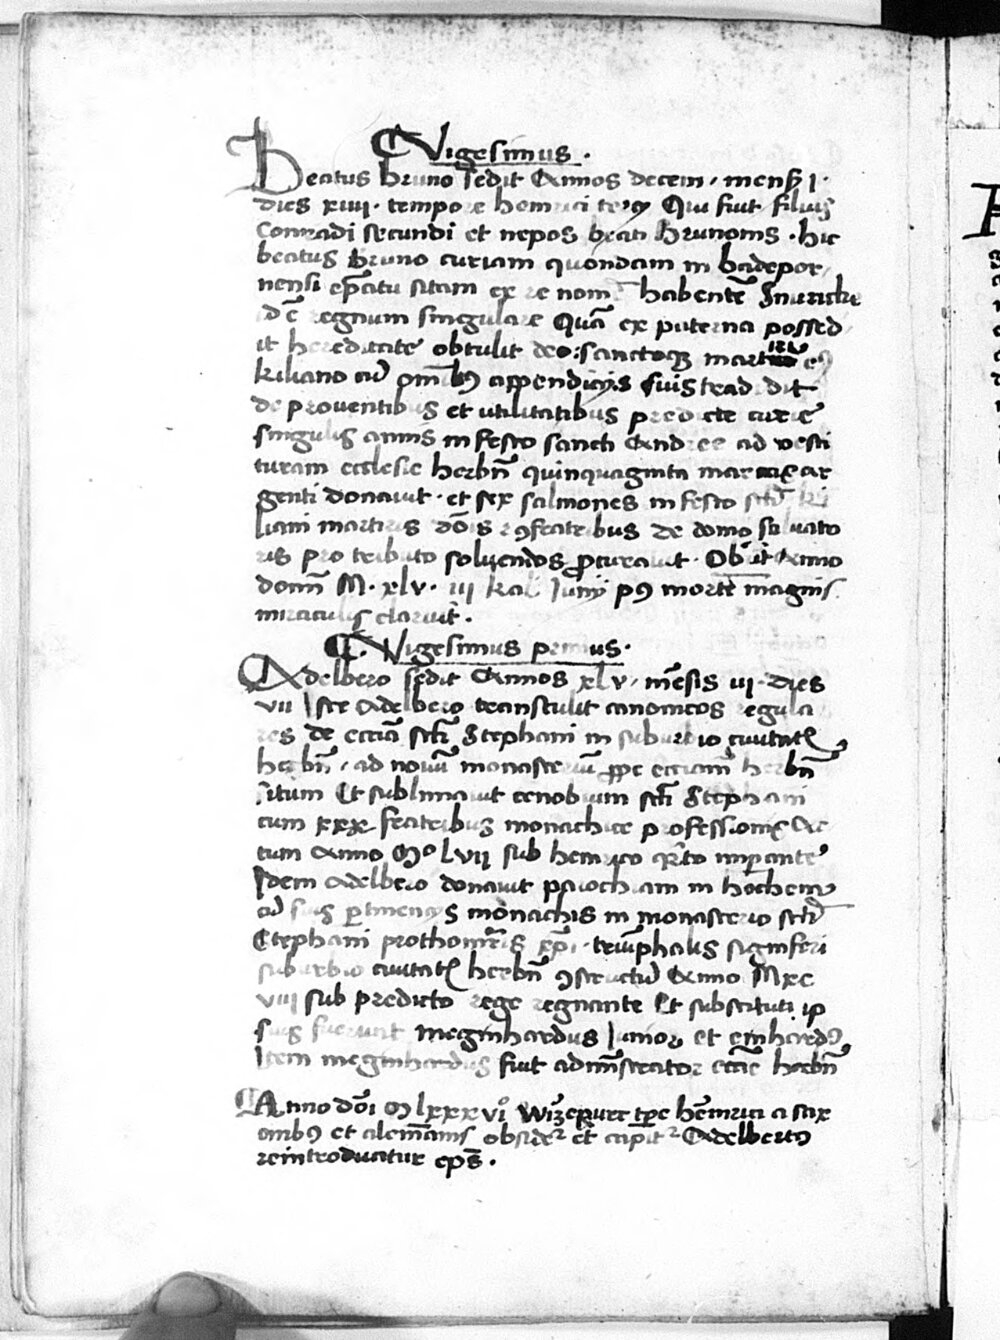 Vigesimus .
Beatus bruno sedit Annos decem . mens᷒ I .
dies xiiii . tempore heinrici tercii Qui fuit filius
Conradi secundi et nepos beati brunonis . hic
beatus Bruno curiam quondam in badepor
nensi ep̄atu sitam ex re nomē habentē
id ē regnum singulare Quā ex paterna possed
it hereditate obtulit deo : sanctoqꝫ martiri eiꝰ
kiliano cū om̄ibꝰ appendicijs suis tradidit
de proventibus et utilitatibus predicte curie
singulis annis in festo sancti Andree ad vesti
turam ecclesie herbn̄ quinquaginta marcas ar
genti donavit . et sex salmones in festo sctī ki
liani martiris dn̄is ꝯfratribus de domo salvato
ris pro tributo solvendos ꝓcuravit . Obiit Anno
domī M . xlv . iii kal Junij pꝰ mortē magnis
miraculis claruit .
Vigesimus primus .
Adelbero sedit Annos xlv , mēsis iii . dies
vii Iste Adelbero transtulit canonicos regula
res de ecc̄ia sctī Stephani in suburbio civitatꝭ
herbn̄ , ad novū monasteriū ꝓpe ecc̄iam herbn̄
situm Et sublimavit cenobium sctī Stephani
cum xxx fratribus monachice professionis Ac
tum Anno Mº LVII sub heinrico qͣrto imperante
Idem Adelbero donavit parochiam in hocheim
cū suis ꝑtinencijs monachis in monasterio sctī
Stephani prothomr̄is xp̄i . triūphalis signiferi
suburbio civitatꝭ herbn̄ ꝯstructū Anno Mxc
viii sub predicto rege regnante Et substituti ip
sius fuerunt meginhardus Junior et einhardꝰ
Item meginhardus fuit admīstrator ecc̄ie herbn̄
Anno dōi M lxxxviº wirczeburc tp̄e hēinrici a sax
onibꝰ et alemānis obsidet᷑ et capit᷑ Adelbertꝰ
reintroducitur ep̄s .